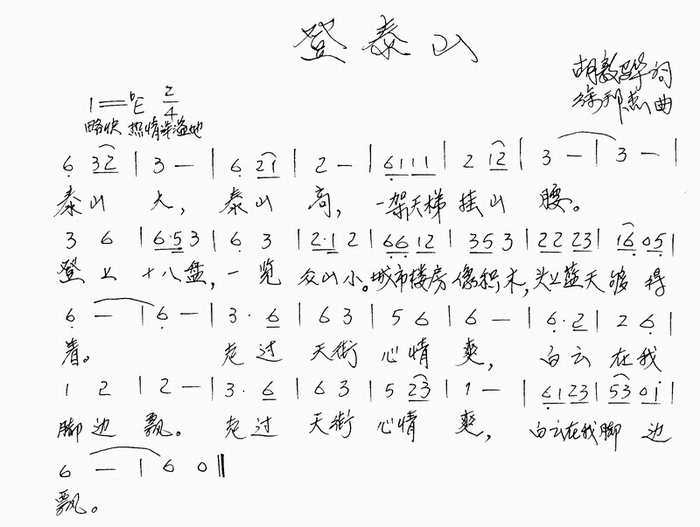 登泰山
胡敦骅词
涂邦杰曲
1=♭E 2/4
略快 热情洋溢地
6 32 | 3 — | 6 21 | 2 — | 6111 | 2 12 | 3 — | 3 — |
泰山 大, 泰山 高, 一架天梯 挂山 腰。
3 6 | 6·5 3 | 6 3 | 2·1 2 | 66 12 | 35 3 | 22 23 | 16 05 |
登上 十八盘, 一览 众山小。城市楼房 像积木, 头上蓝天 够 得
6 — | 6 — | 3·6 | 6 3 | 5 6 | 6 — | 6·2 | 2 6 |
着。 走过 天街 心情 爽, 白云 在我
1 2 | 2 — | 3·6 | 6 3 | 5 23 | 1 — | 6123 | 53 01 |
脚边 飘。 走过 天街 心情 爽, 白云在我 脚 边
6 — | 6 0 ‖
飘。